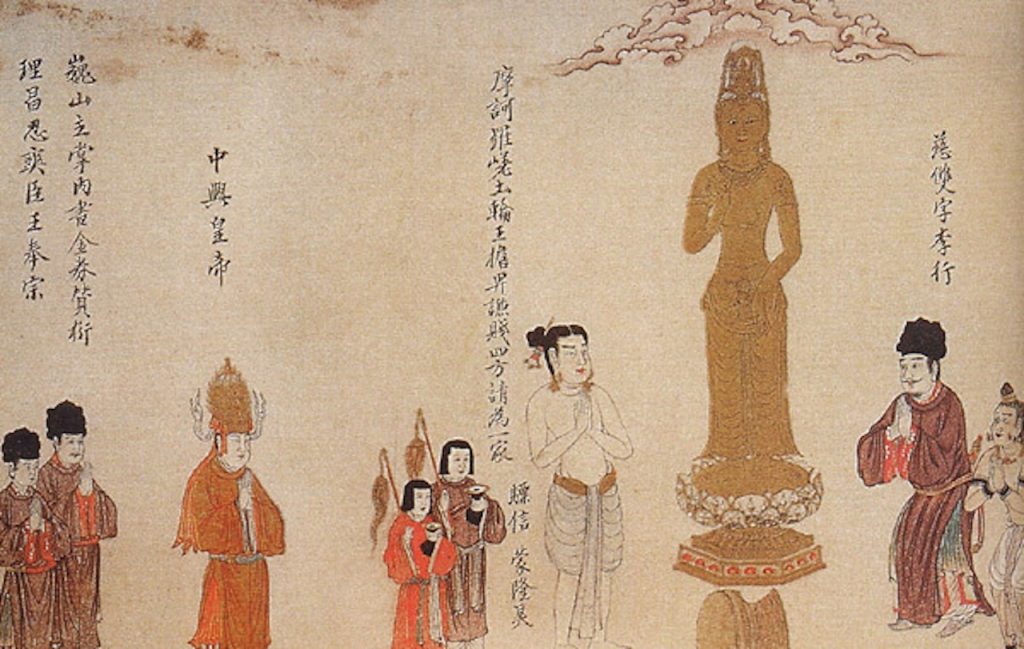 慈雙字李行
摩訶羅嵯土輪王擔畀謙賤四方請為一家
驃信蒙隆昊
中興皇帝
巍山主掌內書金券贊衛
理昌忍爽臣王奉宗